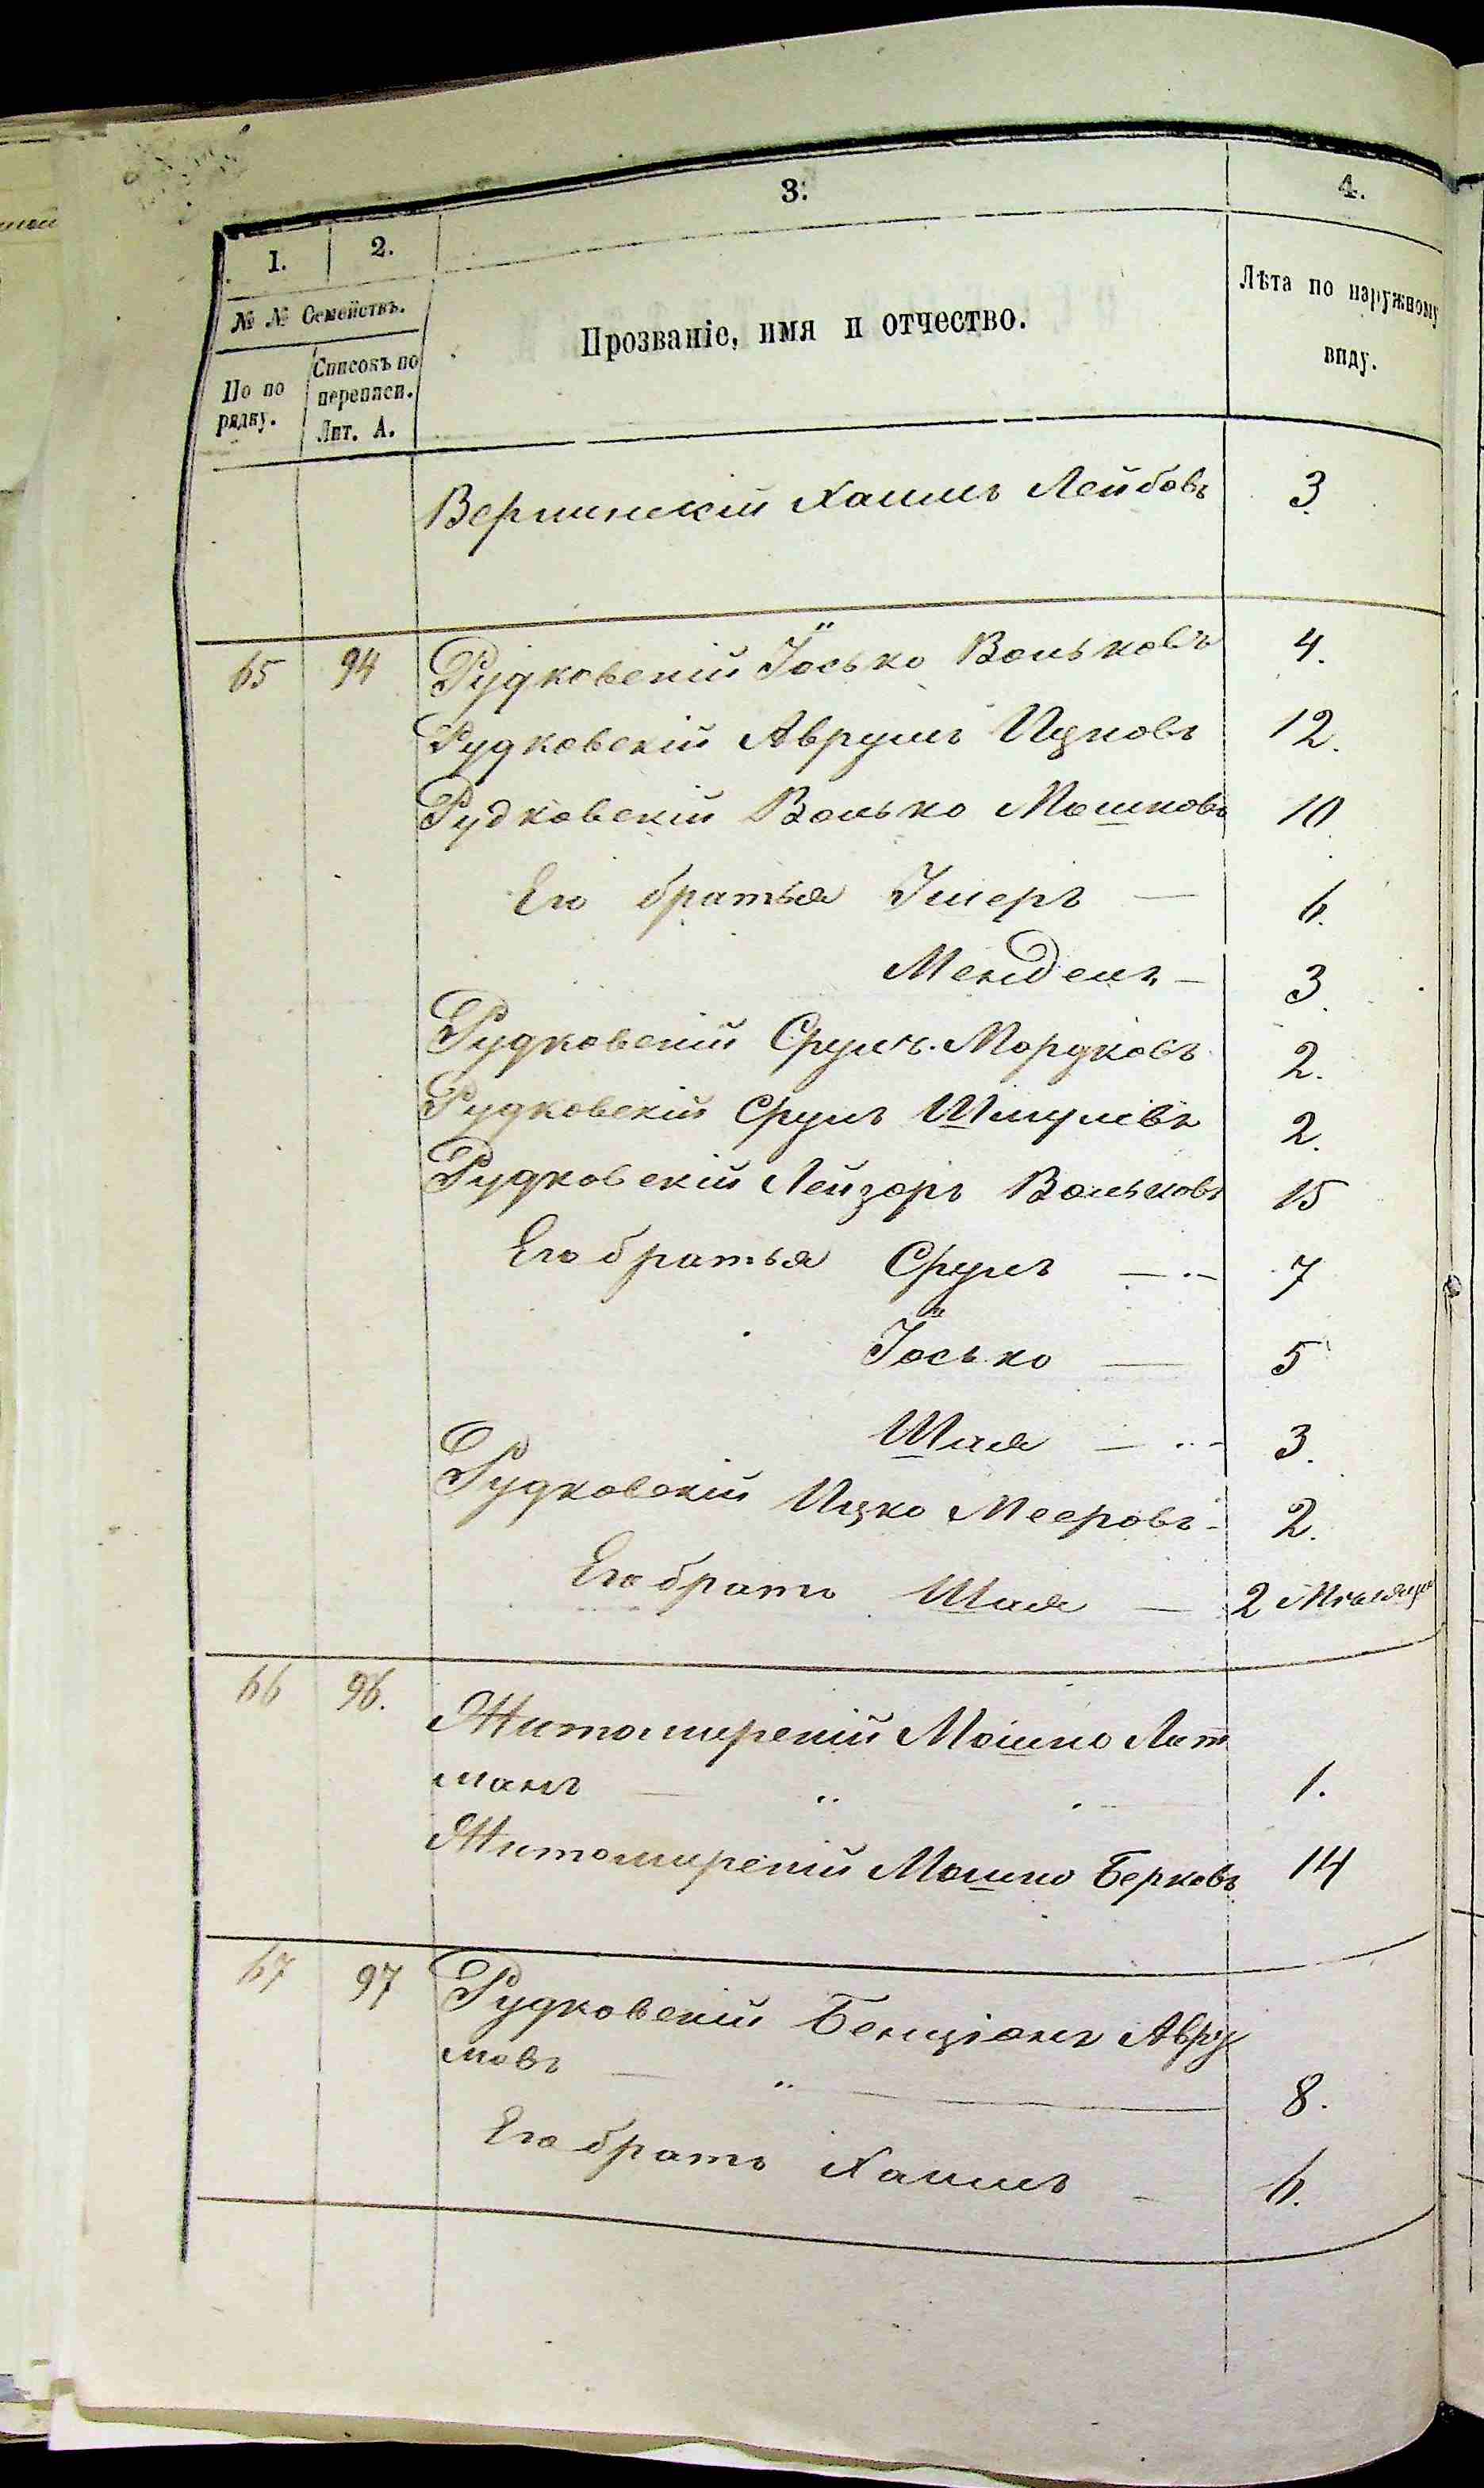 1. 2. 3. 4.
№ № Семействъ.
По по рядку.
Списокъ по переписи. Лит. А.
Прозваніе, имя и отчество.
Лѣта по наружному виду.
Вернинскій Хаимъ Лейбовъ 3
65 94 Рудковскій Іосько Вольковъ 4.
Рудковскій Аврумъ Ицковъ 12.
Рудковскій Волько Мошковъ 10
Его братья Ушеръ — 6.
Мендель — 3
Рудковскій Срулъ Мордковъ 2.
Рудковскій Срулъ Шмулевъ 2.
Рудковскій Лейзоръ Вольковъ 15
Его братья Срулъ — 7
Іосько — 5
Шая — 3.
Рудковскій Ицко Мееровъ - 2.
Его братъ Шая — 2 Мѣсяца
66 96. Житомирскій Мошко Лит
манъ — „ — 1.
Житомирскій Мошко Берковъ 14
67 97 Рудковскій Бенціонъ Авру
мовъ — „ — 8.
Его братъ Хаимъ — 6.